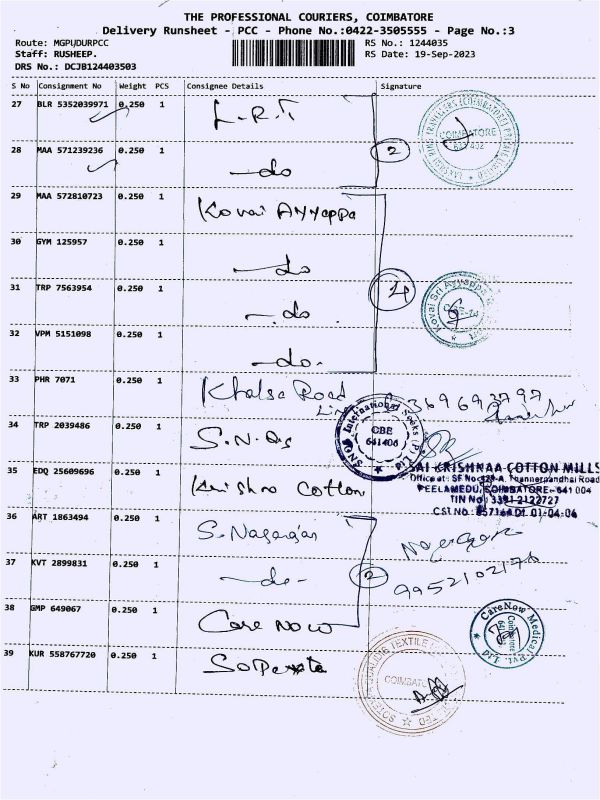 THE PROFESSIONAL COURIERS, COIMBATORE
Delivery Runsheet - PCC - Phone No.:0422-3505555 - Page No.:3
Route: MGPL/DURPCC
Staff: RUSHEEP.
DRS No.: DCJB124403503
RS No.: 1244035
RS Date: 19-Sep-2023
S No Consignment No Weight PCS Consignee Details Signature
27 BLR 5352039971 0.250 1 L.R.T
28 MAA 571239236 0.250 1 do 2
COIMBATORE
29 MAA 572810723 0.250 1 Kovai Ayyappa
30 GYM 125957 0.250 1 do
31 TRP 7563954 0.250 1 do 4
Kovai Sri Ayyappa
32 VPM 5151098 0.250 1 do
33 PHR 7071 0.250 1 Khalsa Road
34 TRP 2039486 0.250 1 S.N.
SNQS International Socks (P) Ltd
CBE
641406
35 EDQ 25609696 0.250 1 Krishna Cotton
SAI KRISHNAA COTTON MILLS
Office at: SF No: Thannerpandhal Road
PEELAMEDU, COIMBATORE- 641 004
TIN No: 2122727
CST No: 01-04-06
36 ART 1863494 0.250 1 S. Nagarajan
37 KVT 2899831 0.250 1 do 2
9952102176
38 GMP 649067 0.250 1 Care Now
CareNow Medical Pvt. Ltd
39 KUR 558767720 0.250 1
COIMBATORE